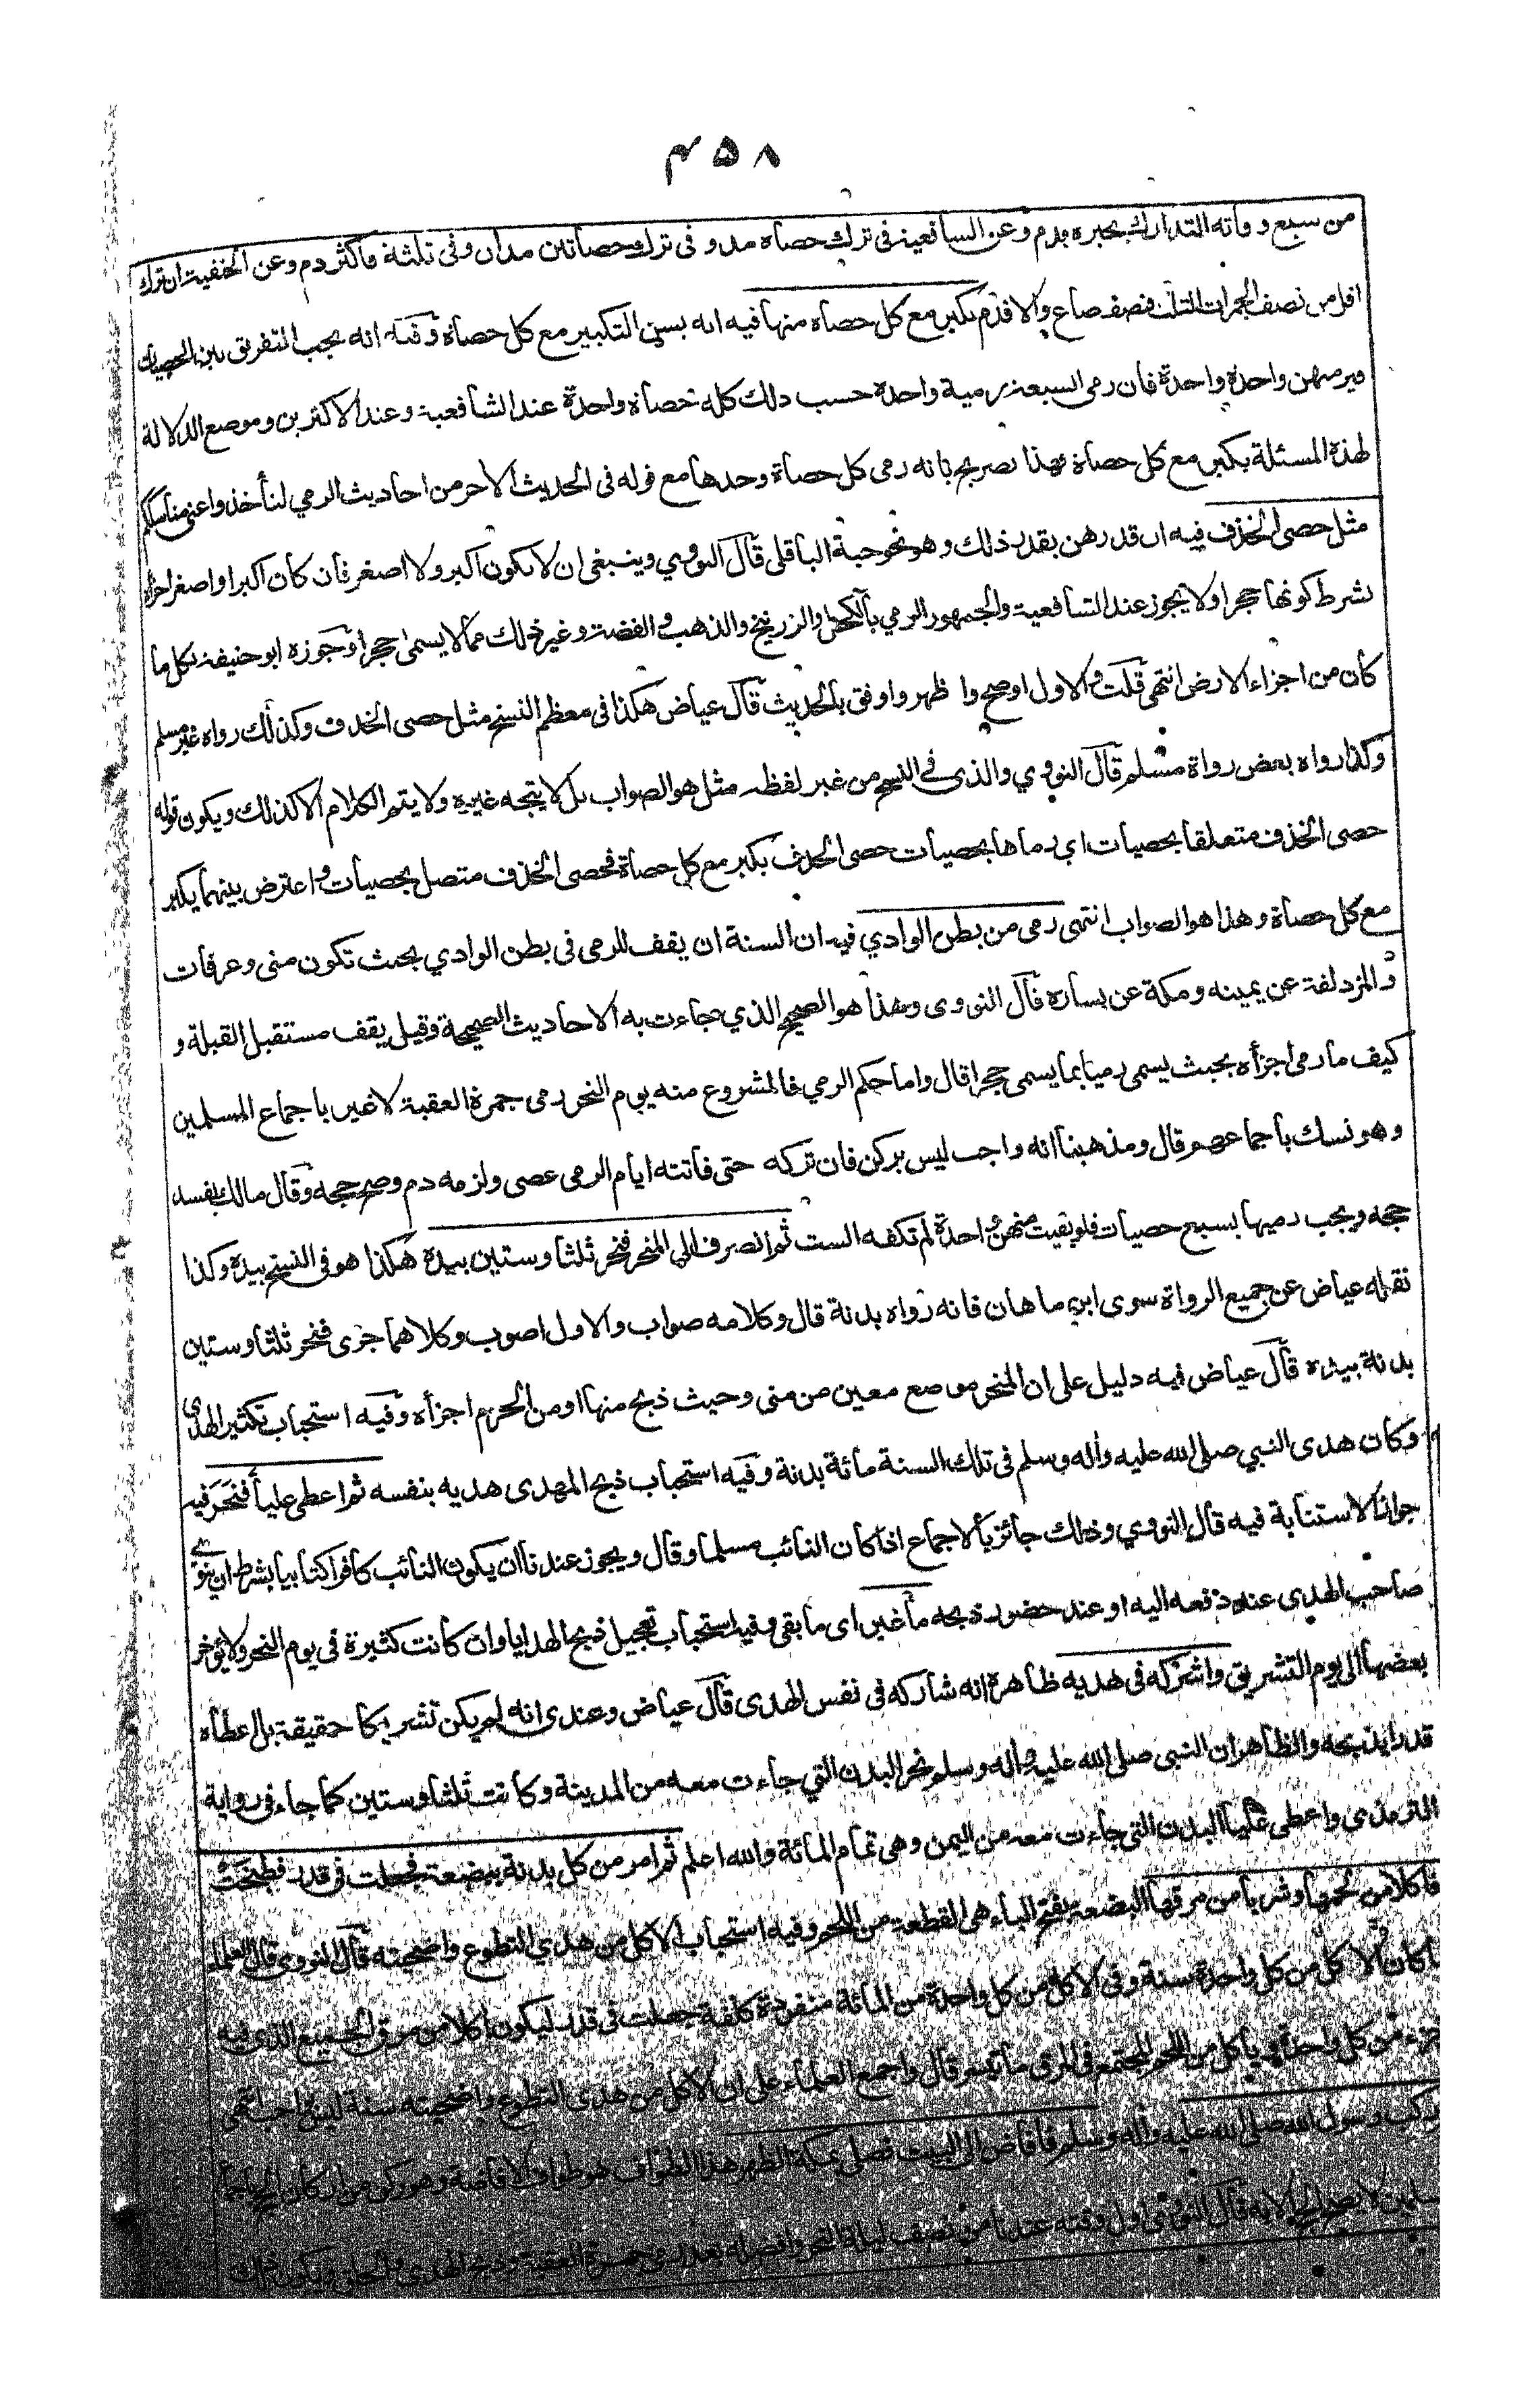 ۴۵۸
من سبع وفاته التدارك يجبره بدم وعن الشافعية في ترك حصاة مد و في ترك حصاتين مدان وفي ثلثة فأكثر دم وعن الحنفية ان ترك
اقل من نصف الجمرات الثلث فنصف صاع والا فدم يكبر مع كل حصاة منها فيه انه يسن التكبير مع كل حصاة وفيه انه يجب التفريق بين الحصيات
فيرميهن واحدة واحدة فان رمى السبعة برمية واحدة حسب ذلك كله حصاة واحدة عند الشافعية وعند الاكثرين وموضع الدلالة
لهذه المسئلة يكبر مع كل حصاة فهذا تصريح بانه رمى كل حصاة وحدها مع قوله في الحديث الاخر من احاديث الرمي لتأخذوا عني مناسككم
مثل حصى الخذف فيه ان قدرهن بقدر ذلك وهو نحو حبة الباقلى قال النووي وينبغي ان لا يكون اكبر ولا اصغر فان كان اكبر او اصغر اجزاه
بشرط كونها حجرا ولا يجوز عند الشافعية والجمهور الرمي بالكحل والزرنيخ والذهب والفضة وغير ذلك مما لا يسمى حجرا وجوزه ابو حنيفة بكل ما
كان من اجزاء الارض انتهى قلت والاول اوضح واظهر واوفق بالحديث قال عياض هكذا في معظم النسخ مثل حصى الخذف وكذلك رواه غير مسلم
وكذا رواه بعض رواة مسلم قال النووي والذي في النسخ من غير لفظه مثل هو الصواب بل لا يتجه غيره ولا يتم الكلام الا كذلك ويكون قوله
حصى الخذف متعلقا بحصيات اي رماها بحصيات حصى الخذف يكبر مع كل حصاة فحصى الخذف متصل بحصيات واعترض بينهما يكبر
مع كل حصاة وهذا هو الصواب انتهى رمى من بطن الوادي فيه ان السنة ان يقف للرمي في بطن الوادي بحيث تكون منى وعرفات
والمزدلفة عن يمينه ومكة عن يساره قال النووى وهذا هو الصحيح الذي جاءت به الاحاديث الصحيحة وقيل يقف مستقبل القبلة و
كيف ما رمى اجزأه بحيث يسمى رميا بما يسمى حجرا قال واما حكم الرمي فالمشروع منه يوم النحر رمى جمرة العقبة لا غير باجماع المسلمين
وهو نسك بأجماعهم قال ومذهبنا انه واجب ليس بركن فان تركه حتى فاتته ايام الرمى عصى ولزمه دم وصح حجه وقال مالك يفسد
حجه ويجب رميها بسبع حصيات فلو بقيت منهن واحدة لم تكفه الست ثم انصرف الى المنحر فنحر ثلثا وستين بيده هكذا هو في النسخ بيده وكذا
نقله عياض عن جميع الرواة سوى ابن ماهان فانه رواه بدنة قال وكلامه صواب والاول اصوب وكلاهما جرى فنحر ثلثا وستين
بدنة بيده قال عياض فيه دليل على ان المنحر موضع معين من منى وحيث ذبح منها او من الحرم اجزأه وفيه استحباب تكثير الهدى
وكان هدى النبي صلى الله عليه وأله وسلم في تلك السنة مائة بدنة وفيه استحباب ذبح المهدى هديه بنفسه ثم اعطى عليا فنحر فيه
جواز الاستنابة فيه قال النووي وذلك جائز بالاجماع اذا كان النائب مسلما وقال ويجوز عندنا ان يكون النائب كافرا كتابيا بشرط ان ينوي
صاحب الهدى عند دفعه اليه او عند حضور ذبحه ما غبر اى ما بقى وفيه استحباب تعجيل ذبح الهدايا وان كانت كثيرة في يوم النحر ولا يؤخر
بعضها الى يوم التشريق واشركه في هديه ظاهره انه شاركه في نفس الهدى قال عياض وعندى انه لم يكن تشريكا حقيقة بل اعطاه
قدرا يذبحه والظاهر ان النبى صلى الله عليه وأله وسلم نحر البدن التي جاءت معه من المدينة وكانت ثلثا وستين كما جاء في رواية
الترمذي واعطى عليا البدن التي جاءت معه من اليمن وهي تمام المائة والله اعلم ثم امر من كل بدنة ببضعة فجعلت في قدر فطبخت
فأكلا من لحمها وشربا من مرقها البضعة بفتح الباء هى القطعة من اللحم وفيه استحباب الاكل من هدي التطوع واضحيته قال النووى قال العلماء
لما كان الاكل من كل واحدة سنة وفي الاكل من كل واحدة من المائة منفردة كلفة جعلت في قدر ليكون اكلا من مرق الجميع الذي فيه
جزء من كل واحدة ويأكل من اللحم المجتمع في المرق ما تيسر قال واجمع العلماء على ان الاكل من هدى التطوع واضحيته سنة ليس بواجب انتهى
ركب رسول الله صلى الله عليه وأله وسلم فأفاض الى البيت فصلى بمكة الظهر هذا الطواف هو طواف الافاضة وهو ركن من اركان الحج باجماع
المسلمين لا يصح الحج الا به قال النووي اول وقته عندنا من نصف ليلة النحر وافضله بعد رمي جمرة العقبة وذبح الهدى والحلق ويكون ذلك